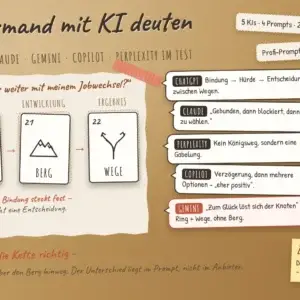 rmand mit KI deuten
AUDE · GEMINI · COPILOT · PERPLEXITY IM TEST
5 KIs · 4 Prompts · 2
Profi-Prompt
weiter mit meinem Jobwechsel?"
ENTWICKLUNG
ERGEBNIS
21
BERG
22
WEGE
Bindung steckt fest –
eine Entscheidung.
CHATGPT Bindung → Hürde → Entscheidun
zwischen Wegen.
CLAUDE „Gebunden, dann blockiert, dann
zu wählen."
PERPLEXITY Kein Königsweg, sondern eine
Gabelung.
COPILOT Verzögerung, dann mehrere
Optionen – „eher positiv".
GEMINI „Zum Glück löst sich der Knoten"
Ring + Wege, ohne Berg.
Kette richtig –
ber den Berg hinweg. Der Unterschied liegt im Prompt, nicht im Anbieter.